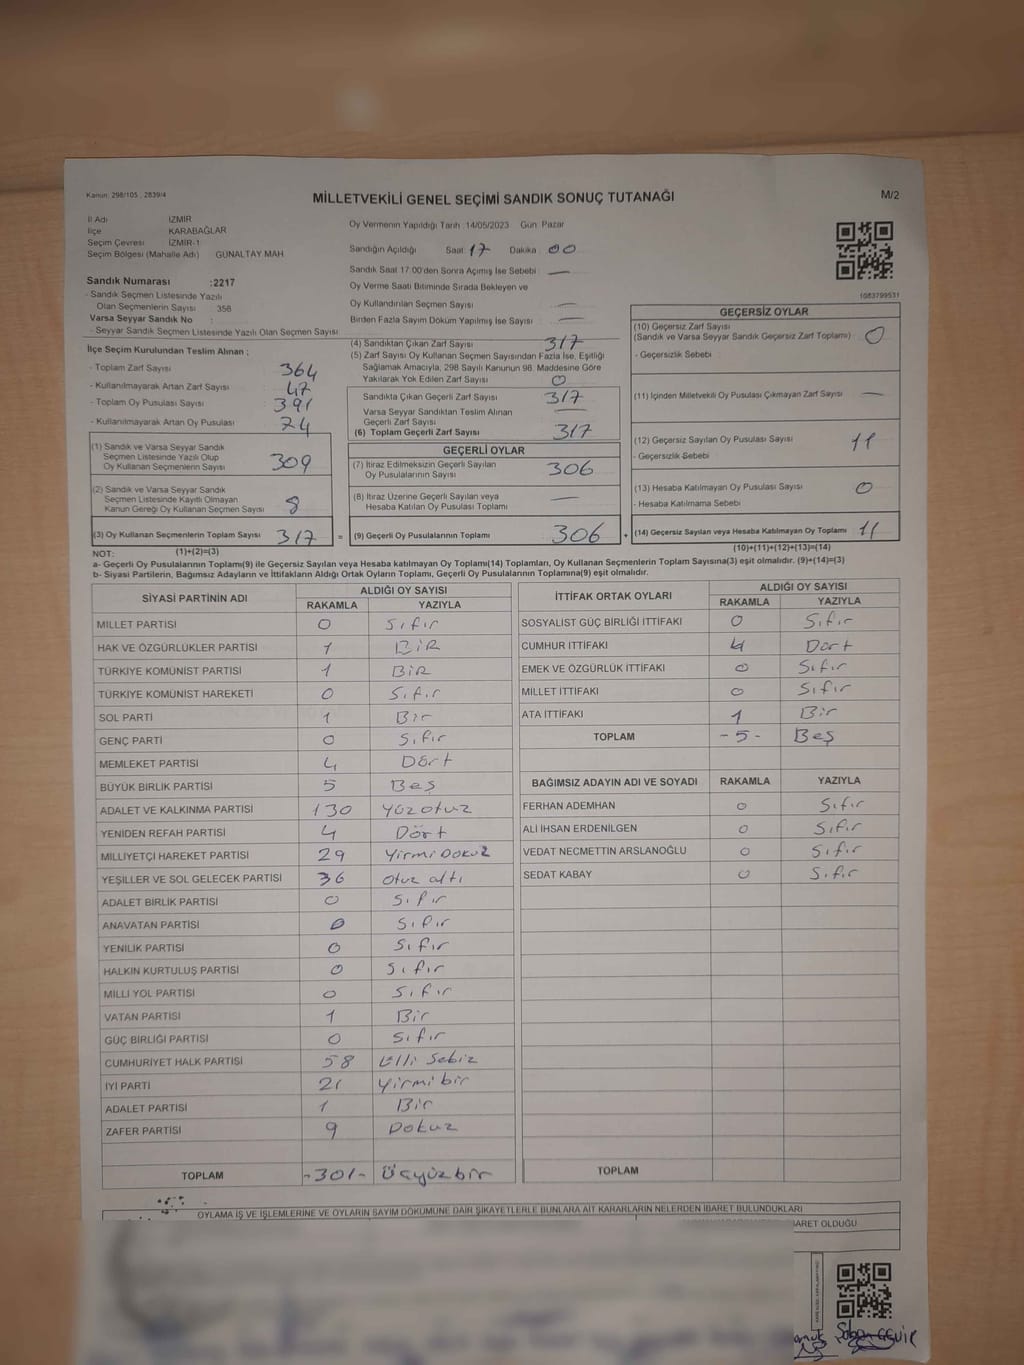 Kanun: 298/105 , 2839/4
MİLLETVEKİLİ GENEL SEÇİMİ SANDIK SONUÇ TUTANAĞI
M/2
İl Adı İZMİR
İlçe KARABAĞLAR
Seçim Çevresi İZMİR-1
Seçim Bölgesi (Mahalle Adı) GÜNALTAY MAH
Sandık Numarası :2217
- Sandık Seçmen Listesinde Yazılı
Olan Seçmenlerin Sayısı : 358
Varsa Seyyar Sandık No :
- Seyyar Sandık Seçmen Listesinde Yazılı Olan Seçmen Sayısı :
Oy Vermenin Yapıldığı Tarih :14/05/2023 Gün: Pazar
Sandığın Açıldığı Saat: 17 Dakika : 00
Sandık Saat 17:00'den Sonra Açımış İse Sebebi : —
Oy Verme Saati Bitiminde Sırada Bekleyen ve
Oy Kullandırılan Seçmen Sayısı : —
Birden Fazla Sayım Döküm Yapılmış İse Sayısı : —
1083799531
İlçe Seçim Kurulundan Teslim Alınan ;
- Toplam Zarf Sayısı : 364
- Kullanılmayarak Artan Zarf Sayısı : 47
- Toplam Oy Pusulası Sayısı : 391
- Kullanılmayarak Artan Oy Pusulası : 74
(1) Sandık ve Varsa Seyyar Sandık
Seçmen Listesinde Yazılı Olup
Oy Kullanan Seçmenlerin Sayısı : 309
(2) Sandık ve Varsa Seyyar Sandık
Seçmen Listesinde Kayıtlı Olmayan
Kanun Gereği Oy Kullanan Seçmen Sayısı : 8
(3) Oy Kullanan Seçmenlerin Toplam Sayısı : 317 =
(1)+(2)=(3)
(4) Sandıktan Çıkan Zarf Sayısı : 317
(5) Zarf Sayısı Oy Kullanan Seçmen Sayısından Fazla İse, Eşitliği
Sağlamak Amacıyla, 298 Sayılı Kanunun 98. Maddesine Göre
Yakılarak Yok Edilen Zarf Sayısı : 0
Sandıkta Çıkan Geçerli Zarf Sayısı : 317
Varsa Seyyar Sandıktan Teslim Alınan
Geçerli Zarf Sayısı : —
(6) Toplam Geçerli Zarf Sayısı : 317
GEÇERLİ OYLAR
(7) İtiraz Edilmeksizin Geçerli Sayılan
Oy Pusulalarının Sayısı : 306
(8) İtiraz Üzerine Geçerli Sayılan veya
Hesaba Katılan Oy Pusulası Toplamı : —
(9) Geçerli Oy Pusulalarının Toplamı : 306 +
GEÇERSİZ OYLAR
(10) Geçersiz Zarf Sayısı
(Sandık ve Varsa Seyyar Sandık Geçersiz Zarf Toplamı) : 0
- Geçersizlik Sebebi :
(11) İçinden Milletvekili Oy Pusulası Çıkmayan Zarf Sayısı : —
(12) Geçersiz Sayılan Oy Pusulası Sayısı : 11
- Geçersizlik Sebebi :
(13) Hesaba Katılmayan Oy Pusulası Sayısı : 0
- Hesaba Katılmama Sebebi :
(14) Geçersiz Sayılan veya Hesaba Katılmayan Oy Toplamı : 11
(10)+(11)+(12)+(13)=(14)
NOT:
a- Geçerli Oy Pusulasının Toplamı(9) ile Geçersiz Sayılan veya Hesaba katılmayan Oy Toplamı(14) Toplamları, Oy Kullanan Seçmenlerin Toplam Sayısına(3) eşit olmalıdır. (9)+(14)=(3)
b- Siyasi Partilerin, Bağımsız Adayların ve İttifakların Aldığı Ortak Oyların Toplamı, Geçerli Oy Pusulalarının Toplamına(9) eşit olmalıdır.
SİYASİ PARTİNİN ADI ALDIĞI OY SAYISI
RAKAMLA YAZIYLA
MİLLET PARTİSİ 0 Sıfır
HAK VE ÖZGÜRLÜKLER PARTİSİ 1 BİR
TÜRKİYE KOMÜNİST PARTİSİ 1 BİR
TÜRKİYE KOMÜNİST HAREKETİ 0 Sıfır
SOL PARTİ 1 Bir
GENÇ PARTİ 0 Sıfır
MEMLEKET PARTİSİ 4 Dört
BÜYÜK BİRLİK PARTİSİ 5 Beş
ADALET VE KALKINMA PARTİSİ 130 Yüzotuz
YENİDEN REFAH PARTİSİ 4 Dört
MİLLİYETÇİ HAREKET PARTİSİ 29 Yirmi Dokuz
YEŞİLLER VE SOL GELECEK PARTİSİ 36 Otuz altı
ADALET BİRLİK PARTİSİ 0 Sıfır
ANAVATAN PARTİSİ 0 Sıfır
YENİLİK PARTİSİ 0 Sıfır
HALKIN KURTULUŞ PARTİSİ 0 Sıfır
MİLLİ YOL PARTİSİ 0 Sıfır
VATAN PARTİSİ 1 Bir
GÜÇ BİRLİĞİ PARTİSİ 0 Sıfır
CUMHURİYET HALK PARTİSİ 58 Elli Sekiz
İYİ PARTİ 21 Yirmi bir
ADALET PARTİSİ 1 Bir
ZAFER PARTİSİ 9 Dokuz
TOPLAM -301- Üçyüzbir
İTTİFAK ORTAK OYLARI ALDIĞI OY SAYISI
RAKAMLA YAZIYLA
SOSYALİST GÜÇ BİRLİĞİ İTTİFAKI 0 Sıfır
CUMHUR İTTİFAKI 4 Dört
EMEK VE ÖZGÜRLÜK İTTİFAKI 0 Sıfır
MİLLET İTTİFAKI 0 Sıfır
ATA İTTİFAKI 1 Bir
TOPLAM -5- Beş
BAĞIMSIZ ADAYIN ADI VE SOYADI RAKAMLA YAZIYLA
FERHAN ADEMHAN 0 Sıfır
ALİ İHSAN ERDENİLGEN 0 Sıfır
VEDAT NECMETTİN ARSLANOĞLU 0 Sıfır
SEDAT KABAY 0 Sıfır
TOPLAM
OYLAMA İŞ VE İŞLEMLERİNE VE OYLARIN SAYIM DÖKÜMÜNE DAİR ŞİKAYETLERLE BUNLARA AİT KARARLARIN NELERDEN İBARET BULUNDUKLARI
BARET OLDUĞU